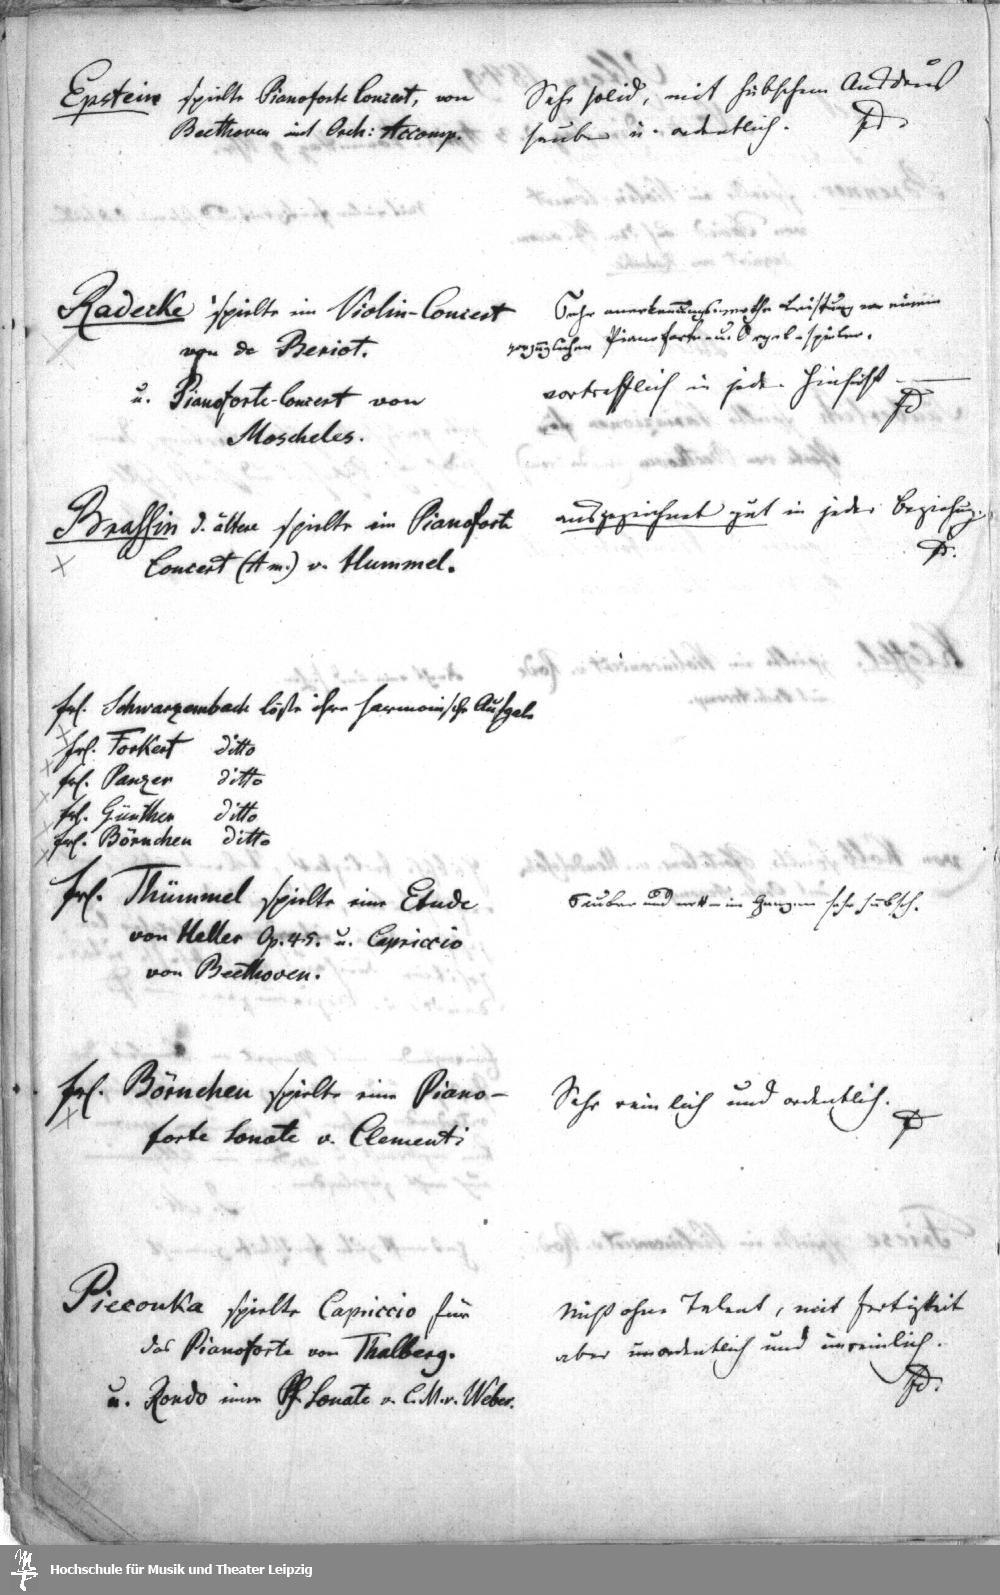 Epstein spielte Pianoforte Concert, von
Beethoven mit Orch: Accomp.
Sehr solid, mit hübschem Ausdruck
sauber u. ordentlich.
Radecke spielte ein Violin-Concert
von de Beriot.
u. Pianoforte-Concert von
Moscheles.
Sehr anerkennungswerthe Leistung von einem
vorzüglichen Pianoforte- u. Orgelspieler.
vortrefflich in jeder Hinsicht
Brassin d. ältere spielte ein Pianoforte
Concert (A m.) v. Hummel.
ausgezeichnet gut in jeder Beziehung.
Frl. Schwarzenbach löste ihre harmonische Aufgabe
Frl. Forkert ditto
Frl. Panzer ditto
Frl. Günther ditto
Frl. Börnchen ditto
Frl. Thümmel spielte eine Etude
von Heller Op. 45. u. Capriccio
von Beethoven.
Sauber und nett im Ganzen sehr hübsch.
Frl. Börnchen spielte eine Piano-
forte Sonate v. Clementi
Sehr reinlich und ordentlich.
Pieconka spielte Capriccio für
das Pianoforte von Thalberg.
u. Rondo einer Pf Sonate v. C. M. v. Weber.
Nicht ohne Talent, mit Fertigkeit
aber unordentlich und unreinlich.
Hochschule für Musik und Theater Leipzig